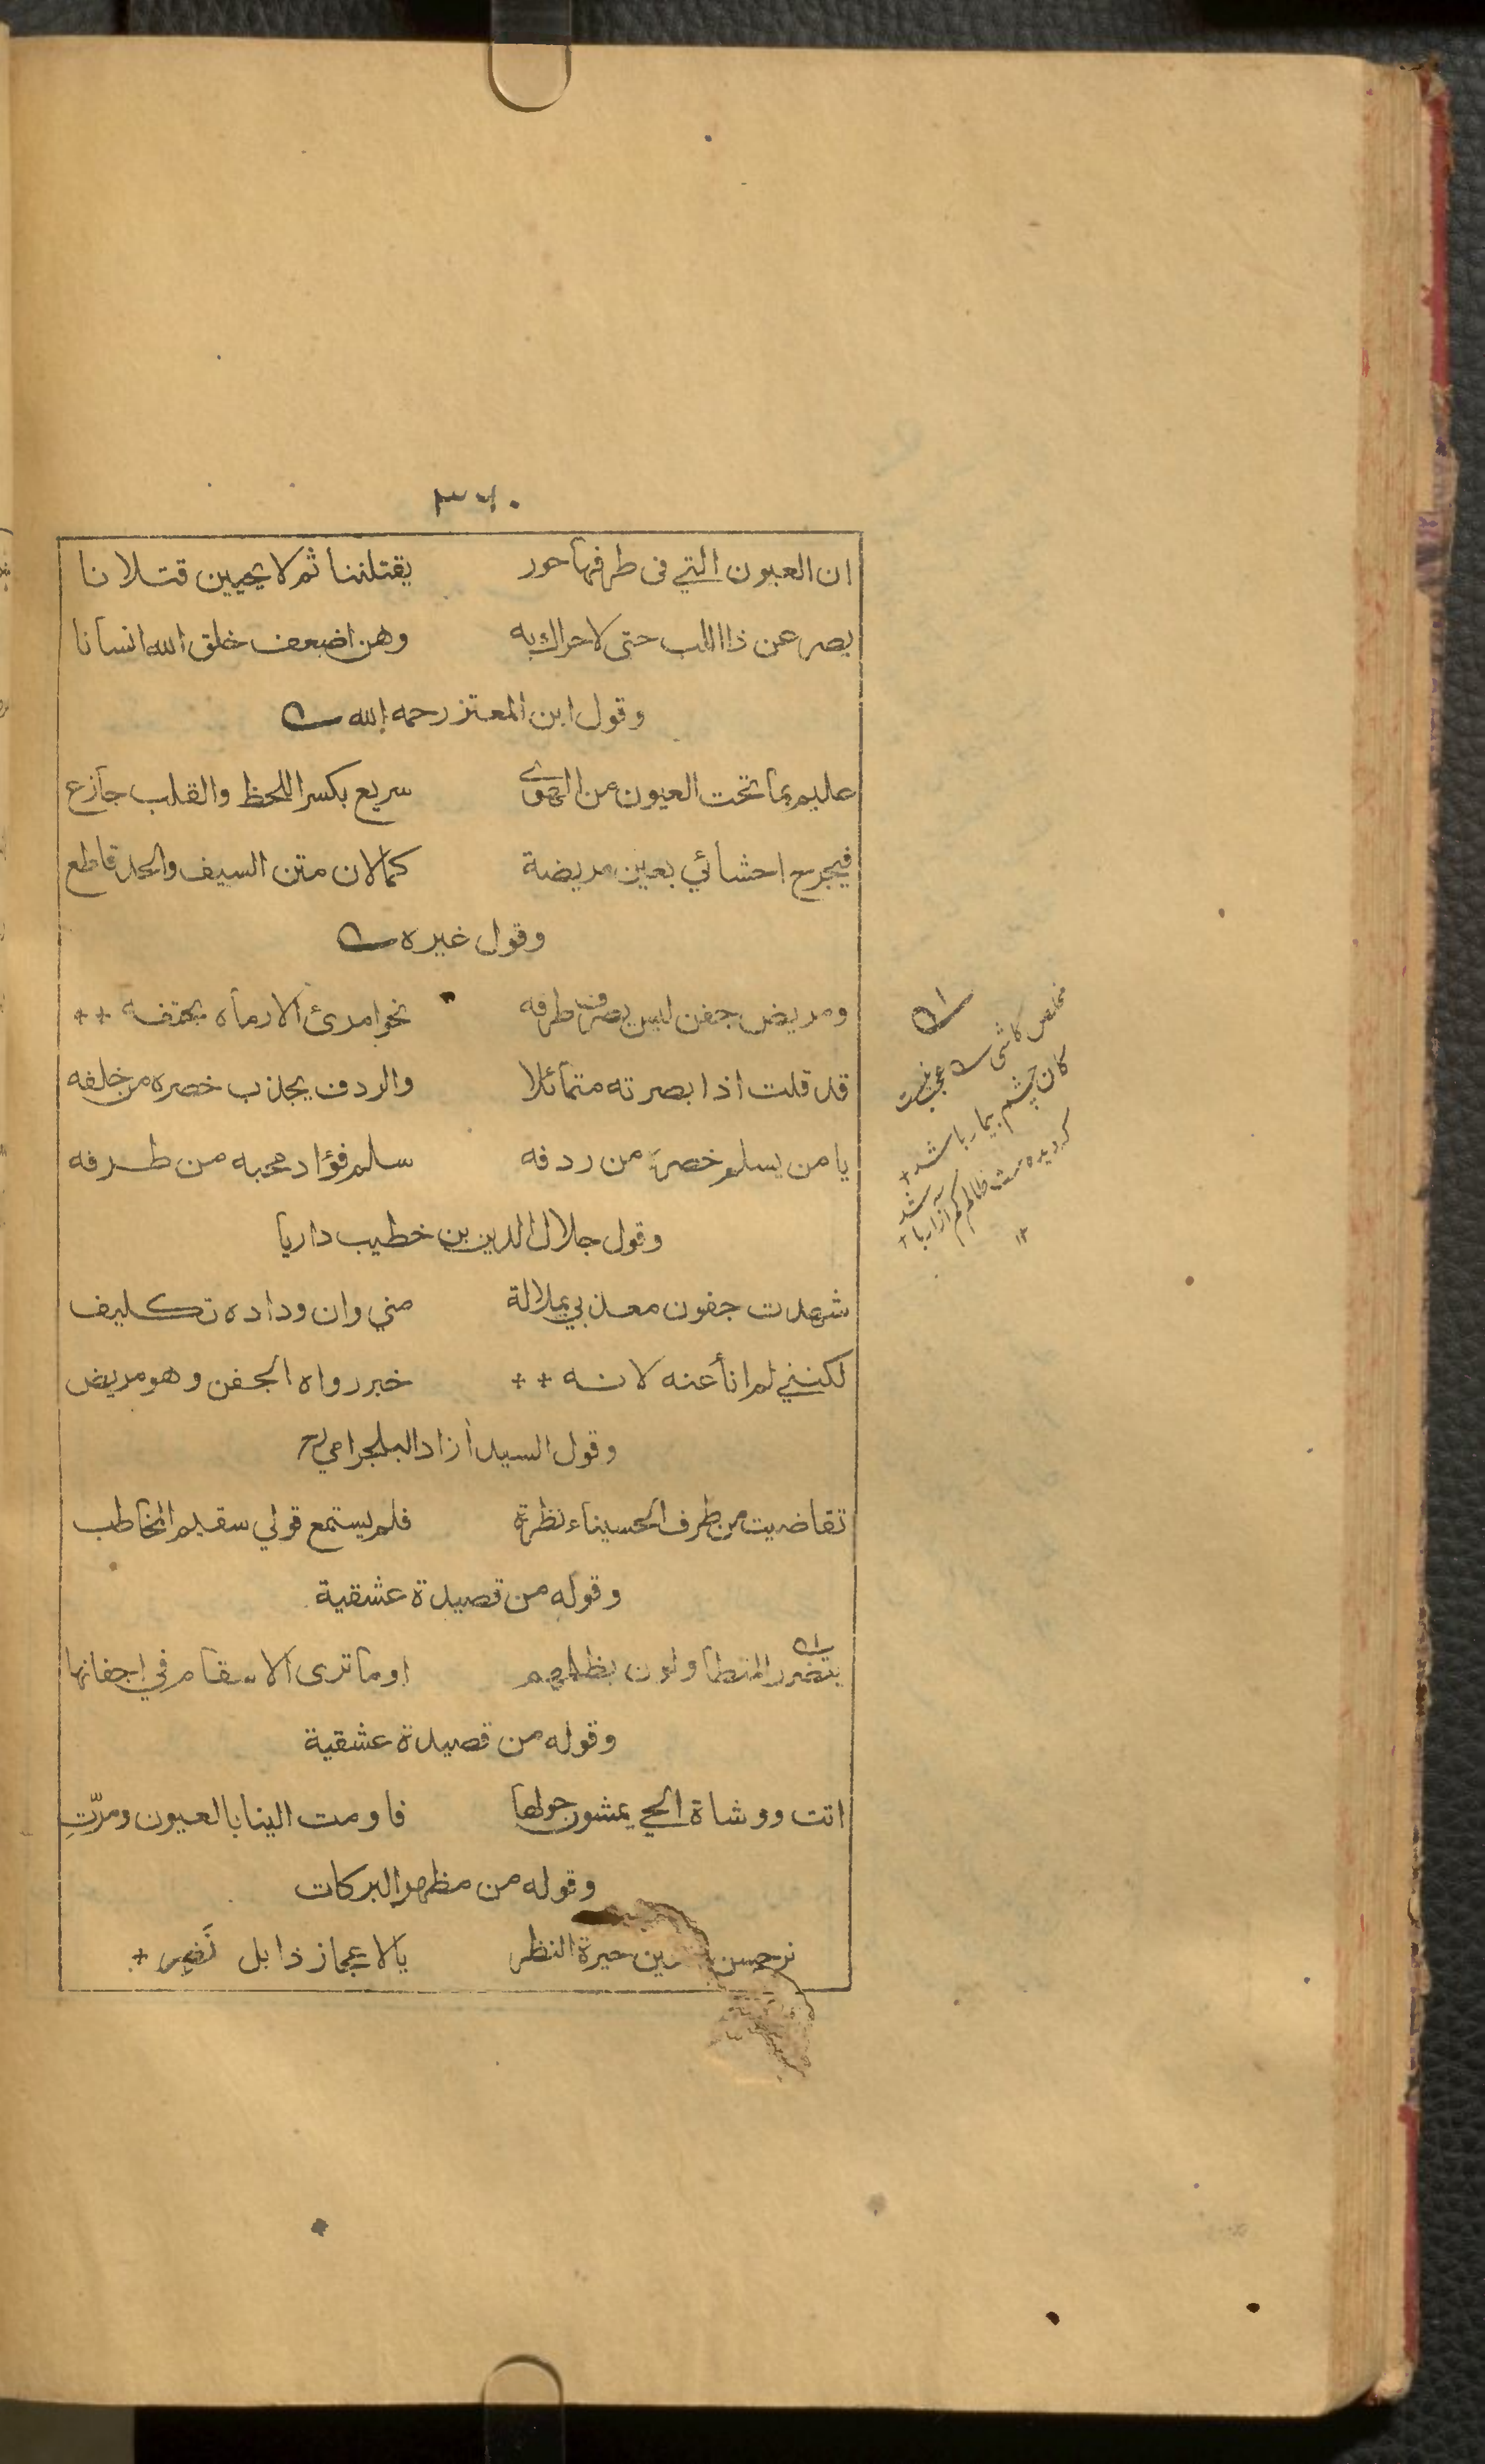 ٣٦٠
ان العيون التي فى طرفها حور يقتلننا ثم لا يحيين قتلانا
يصرعن ذا اللب حتى لا حراك به وهن اضعف خلق الله انسانا
وقول ابن المعتز رحمه الله
عليم بما تحت العيون من الهوى سريع بكسر اللحظ والقلب جازع
فيجرح احشائي بعين مريضة كما لان متن السيف والحد قاطع
وقول غيره
ومريض جفن ليس يصرف طرفه نحو امرئ الا رماه بحتفه ++
قد قلت اذا بصرته متمائلا والردف يجذب خصره من خلفه
يا من يسلم خصره من ردفه سلم فؤاد محبه من طرفه
وقول جلال الدين بن خطيب داريا
شهدت جفون معذبي بملالة مني وان وداده تكليف
لكنني لم انأ عنه لانه ++ خبر رواه الجفن وهو مريض
وقول السيد آزاد البلجرامي رح
تقاضيت من طرف الحسيناء نظرة فلم يستمع قولي سقيم المخاطب
وقوله من قصيدة عشقية
يتضرر المتطاولون بظلمهم اوما ترى الاسقام في اجفانها
وقوله من قصيدة عشقية
اتت ووشاة الحي يمشون حولها فاومت الينا بالعيون ومرّتِ
وقوله من مظهر البركات
نرجس حيرة النظر بالاعجاز ذابل نَضِر +
مخلص كاشى
كان چشم بيمار باشد +
كم آزار باشد +
١٢